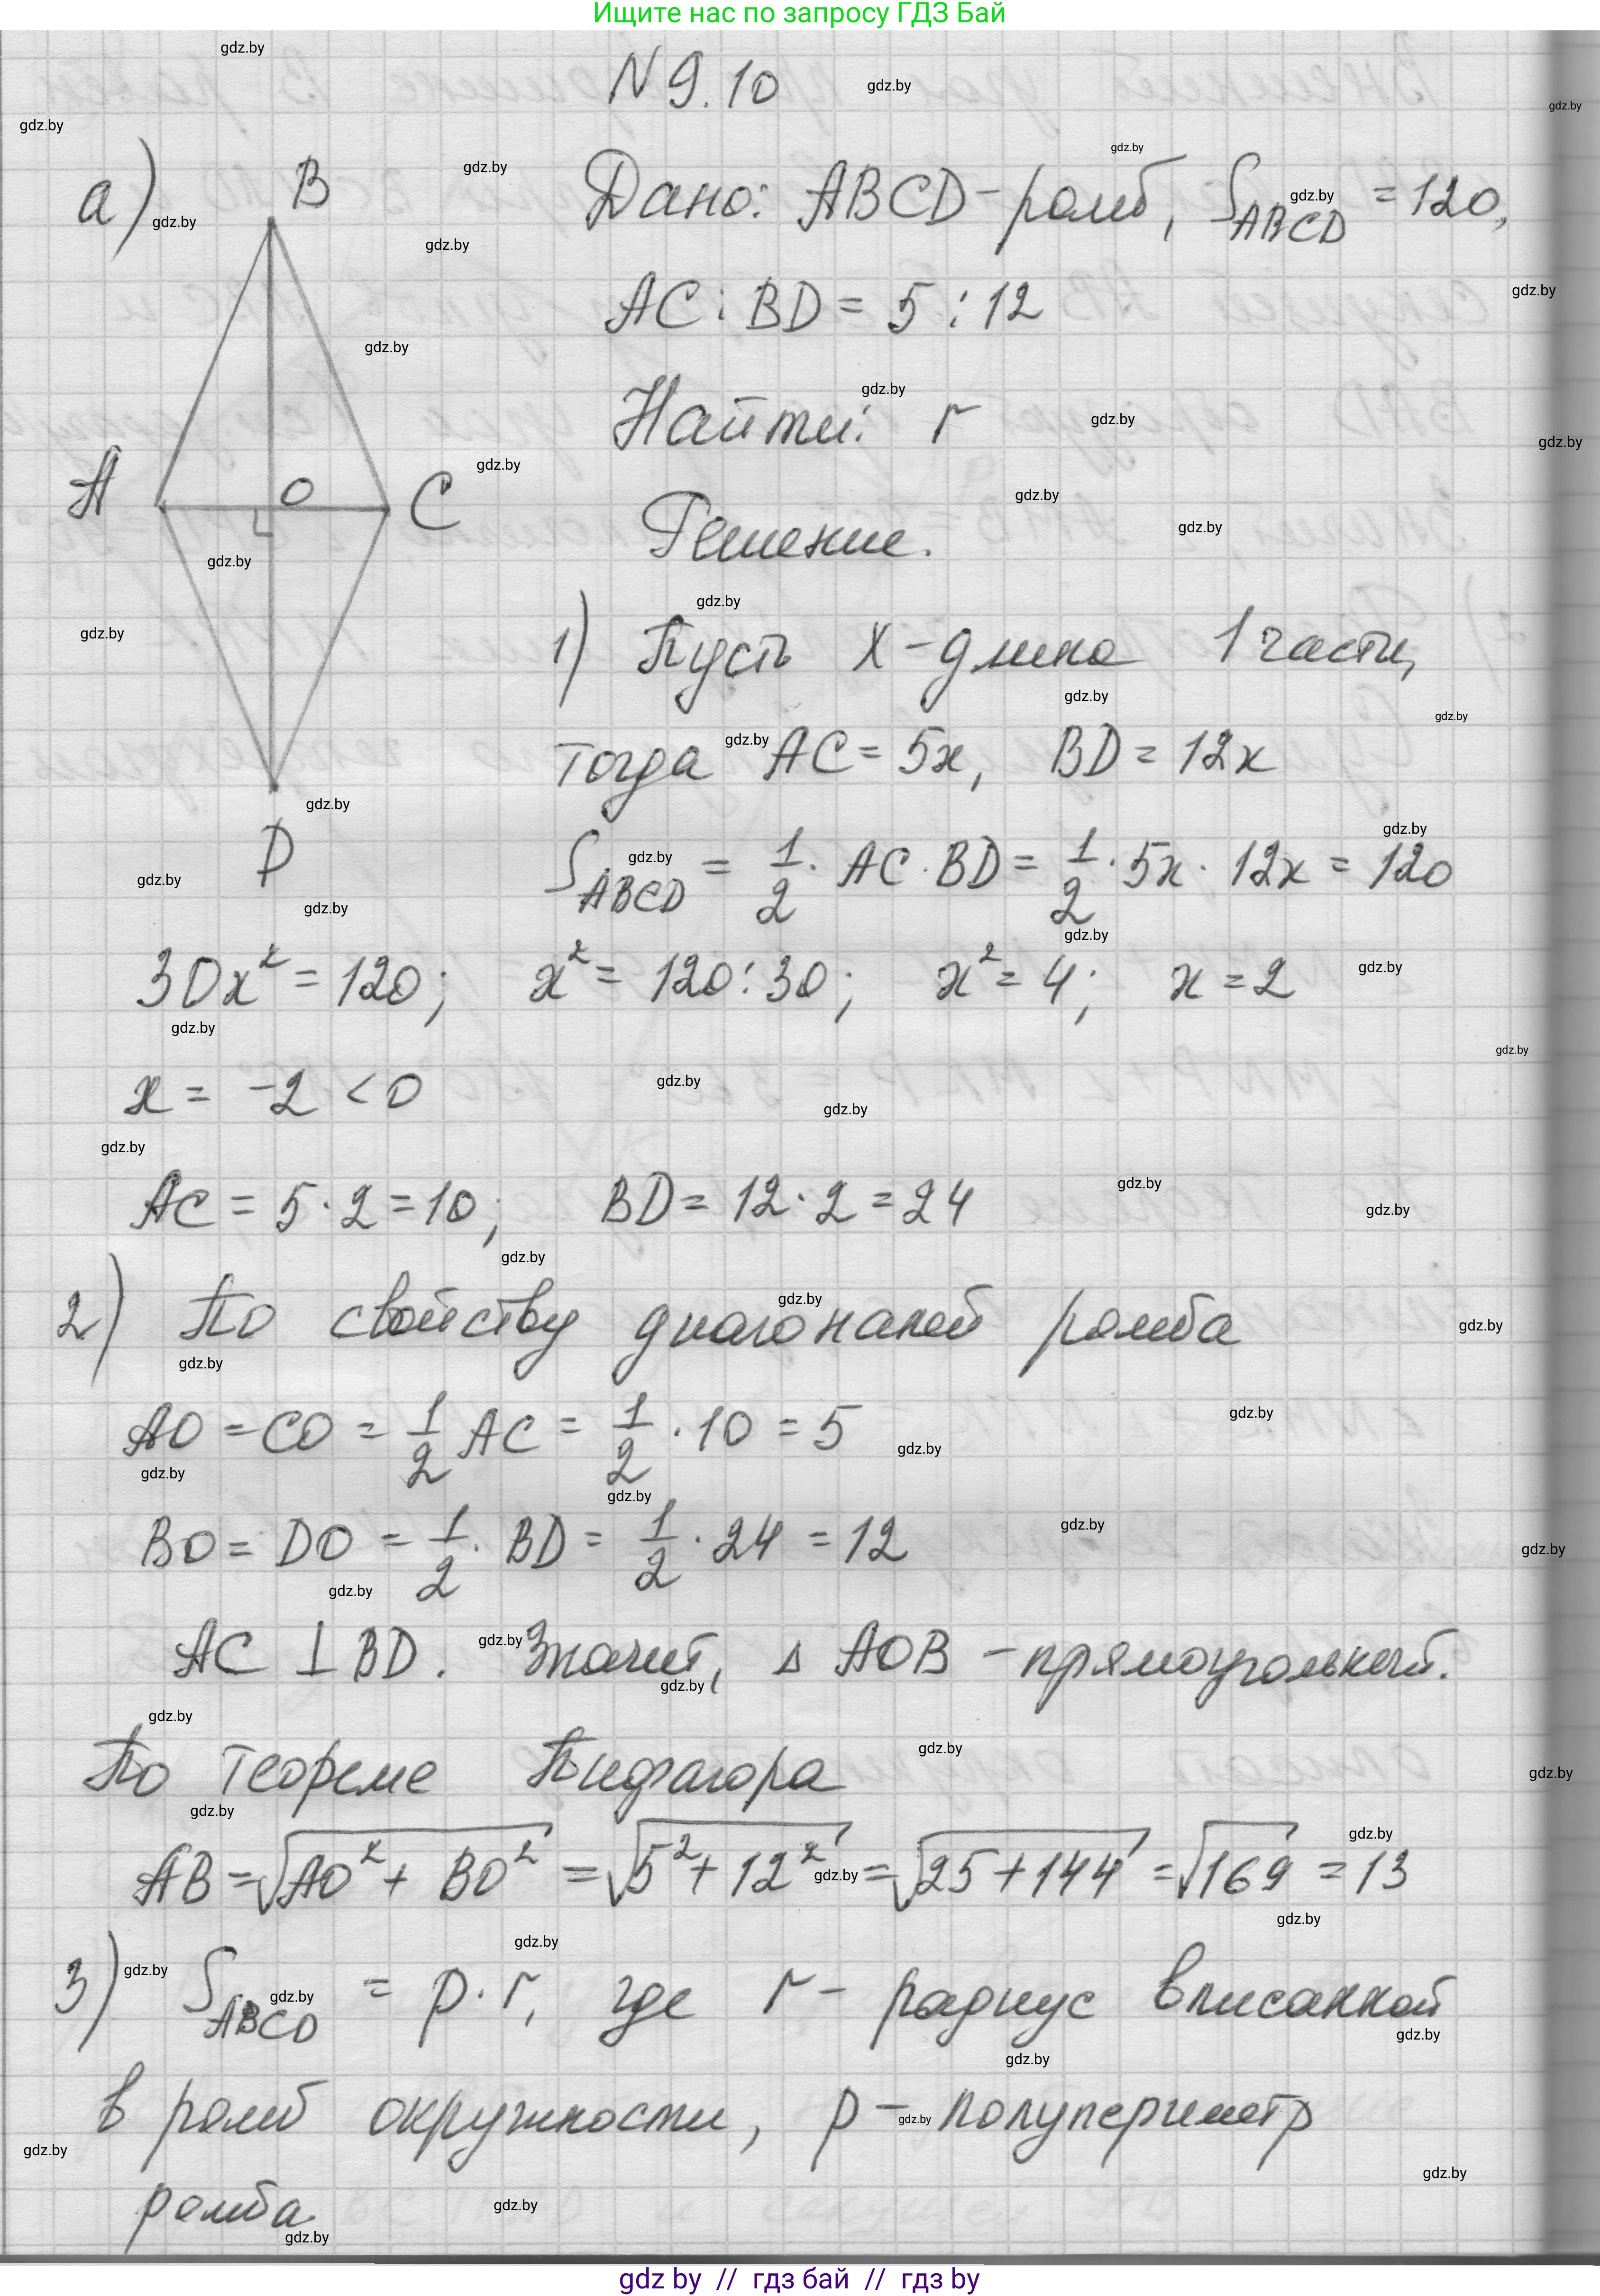 Ищите нас по запросу ГДЗ Бай
N 9.10
а)
B
A
O
C
D
Дано: ABCD - ромб, S_ABCD = 120,
AC : BD = 5 : 12
Найти: r
Решение.
1) Пусть x - длина 1 части,
тогда AC = 5x, BD = 12x
S_ABCD = 1/2 · AC · BD = 1/2 · 5x · 12x = 120
30x² = 120; x² = 120 : 30; x² = 4; x = 2
x = -2 < 0
AC = 5 · 2 = 10; BD = 12 · 2 = 24
2) По свойству диагоналей ромба
AO = CO = 1/2 AC = 1/2 · 10 = 5
BO = DO = 1/2 · BD = 1/2 · 24 = 12
AC ⊥ BD. Значит, Δ AOB - прямоугольный.
По теореме Пифагора
AB = √(AO² + BO²) = √(5² + 12²) = √(25 + 144) = √169 = 13
3) S_ABCD = p · r, где r - радиус вписанной
в ромб окружности, p - полупериметр
ромба.
gdz by // гдз бай // гдз by